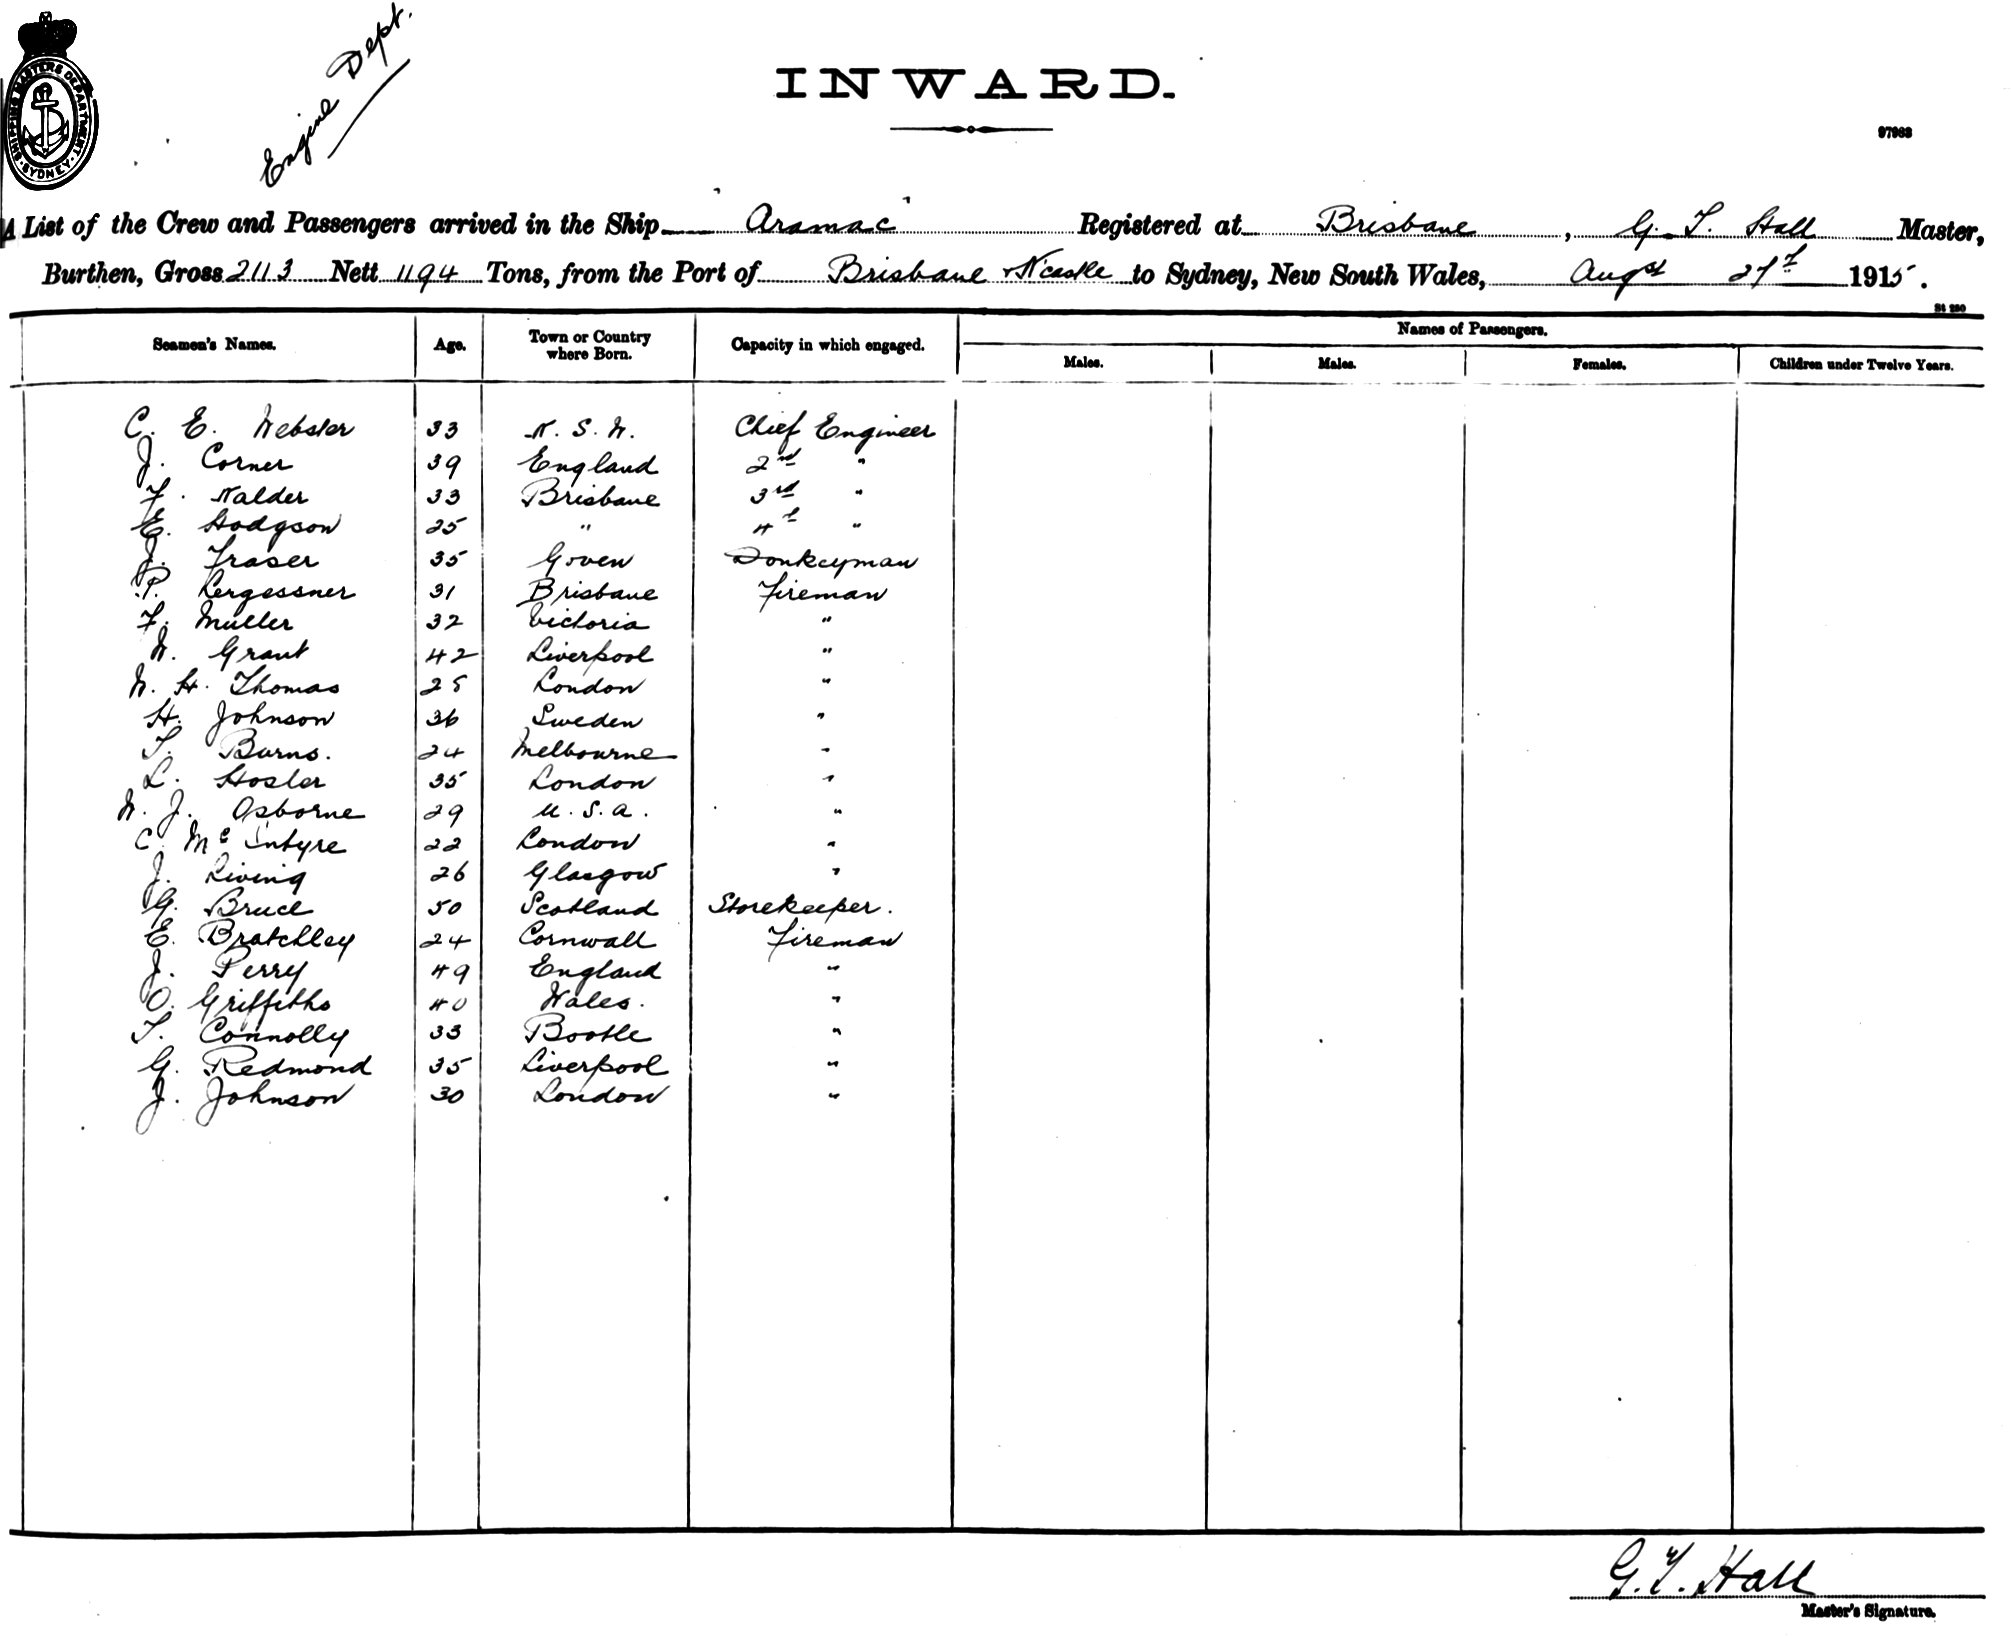 SHIPPING MASTERS DEPARTMENT · SYDNEY ·
Engine Dept.
INWARD.
97983
A List of the Crew and Passengers arrived in the Ship "Aramac" Registered at Brisbane, G. T. Hall Master,
Burthen, Gross 2113 Nett 1194 Tons, from the Port of Brisbane + N'castle to Sydney, New South Wales, Augst 27th 1915.
St 280
Seamen's Names. Age. Town or Country where Born. Capacity in which engaged. Names of Passengers.
Males. Males. Females. Children under Twelve Years.
C. E. Webster 33 N. S. W. Chief Engineer
J. Corner 39 England 2nd "
F. Nalder 33 Brisbane 3rd "
E. Hodgson 25 " 4th "
J. Fraser 35 Goven Donkeyman
P. Lergessner 31 Brisbane Fireman
F. Muller 32 Victoria "
W. Grant 42 Liverpool "
W. H. Thomas 25 London "
H. Johnson 36 Sweden "
T. Burns. 24 Melbourne "
L. Hosler 35 London "
W. J. Osborne 29 U. S. A. "
C. McIntyre 22 London "
J. Living 26 Glasgow "
G. Bruce 50 Scotland Storekeeper.
E. Bratchley 24 Cornwall Fireman
J. Perry 49 England "
O. Griffiths 40 Wales. "
T. Connolly 33 Bootle "
G. Redmond 35 Liverpool "
J. Johnson 30 London "
G. T. Hall
Master's Signature.